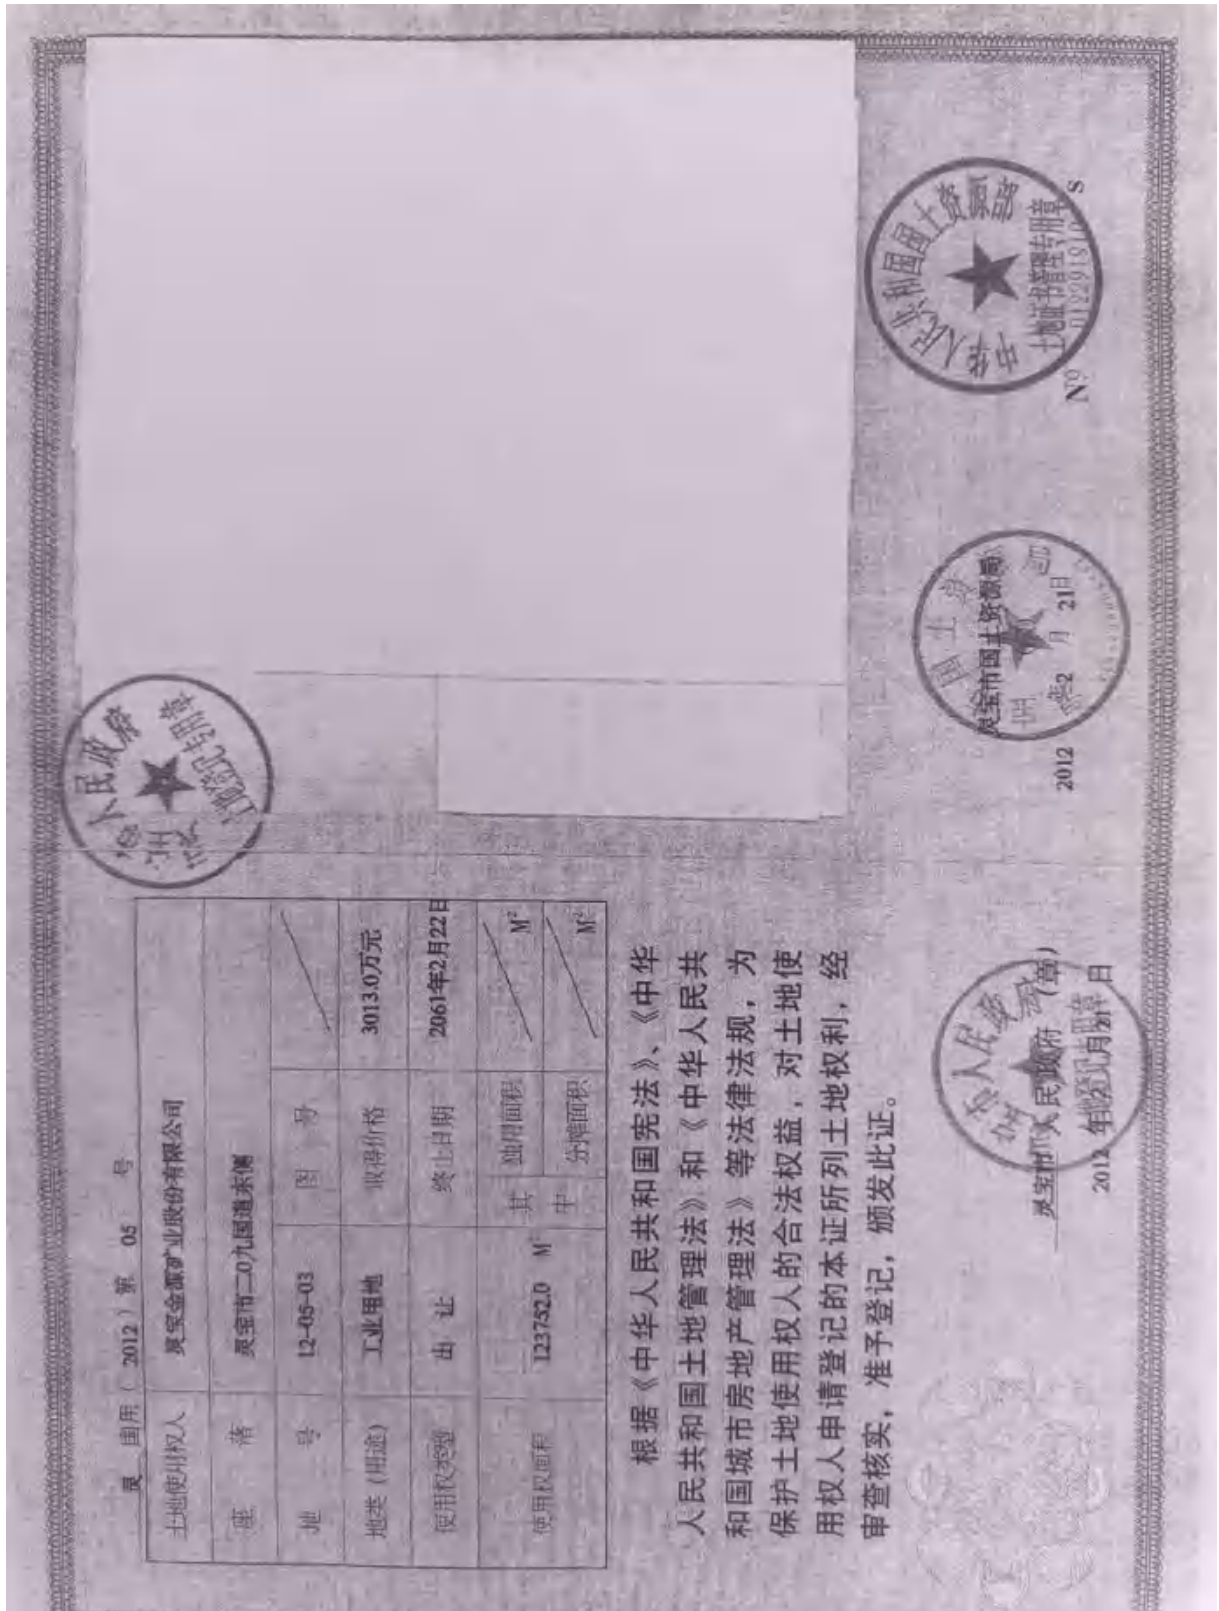 灵 国用（2012）第 05 号
土地使用权人 灵宝金源矿业股份有限公司
座 落 灵宝市二0九国道东侧
地 号 12-05-03 图 号
地类（用途） 工业用地 取得价格 3013.0万元
使用权类型 出 让 终止日期 2061年2月22日
使用权面积 123752.0 M² 其中 独用面积 M²
分摊面积 M²
根据《中华人民共和国宪法》、《中华
人民共和国土地管理法》和《中华人民共
和国城市房地产管理法》等法律法规，为
保护土地使用权人的合法权益，对土地使
用权人申请登记的本证所列土地权利，经
审查核实，准予登记，颁发此证。
灵宝市 人民政府（章）
2012 年 2 月 21 日
人民政府
土地登记专用章
灵宝市国土资源局
2012 年 2 月 21 日
中华人民共和国国土资源部
土地证书管理专用章
Nº